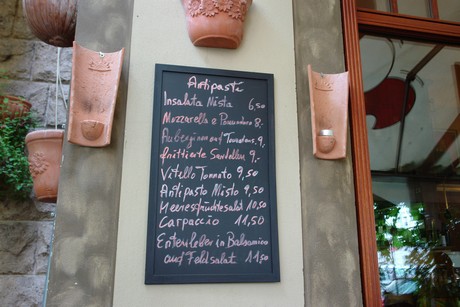 Antipasti
Insalata Mista 6,50
Mozzarella e Pomodoro 8.-
Auberginen auf Tomatens. 9,-
frittierte Sardellen 9,-
Vitello Tonnato 9,50
Antipasto Misto 9,50
Meeresfrüchtesalat 10,50
Carpaccio 11,50
Entenleber in Balsamico
auf Feldsalat 11,50